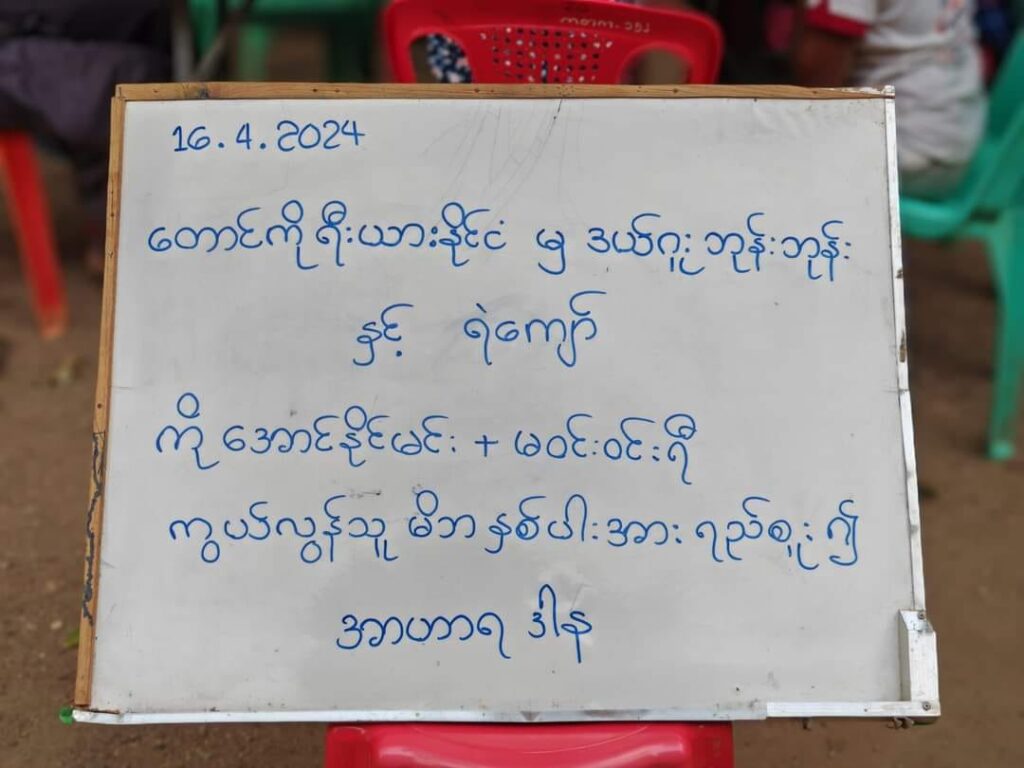 16.4.2024
တောင်ကိုရီးယားနိုင်ငံ မှ ဒယ်ဂူး ဘုန်းဘုန်း
နှင့် ရဲကျော်
ကို အောင်နိုင်မင်း + မဝင်းဝင်းရီ
ကွယ်လွန်သူ မိဘ နှစ်ပါးအား ရည်စူး၍
အာဟာရ ဒါန